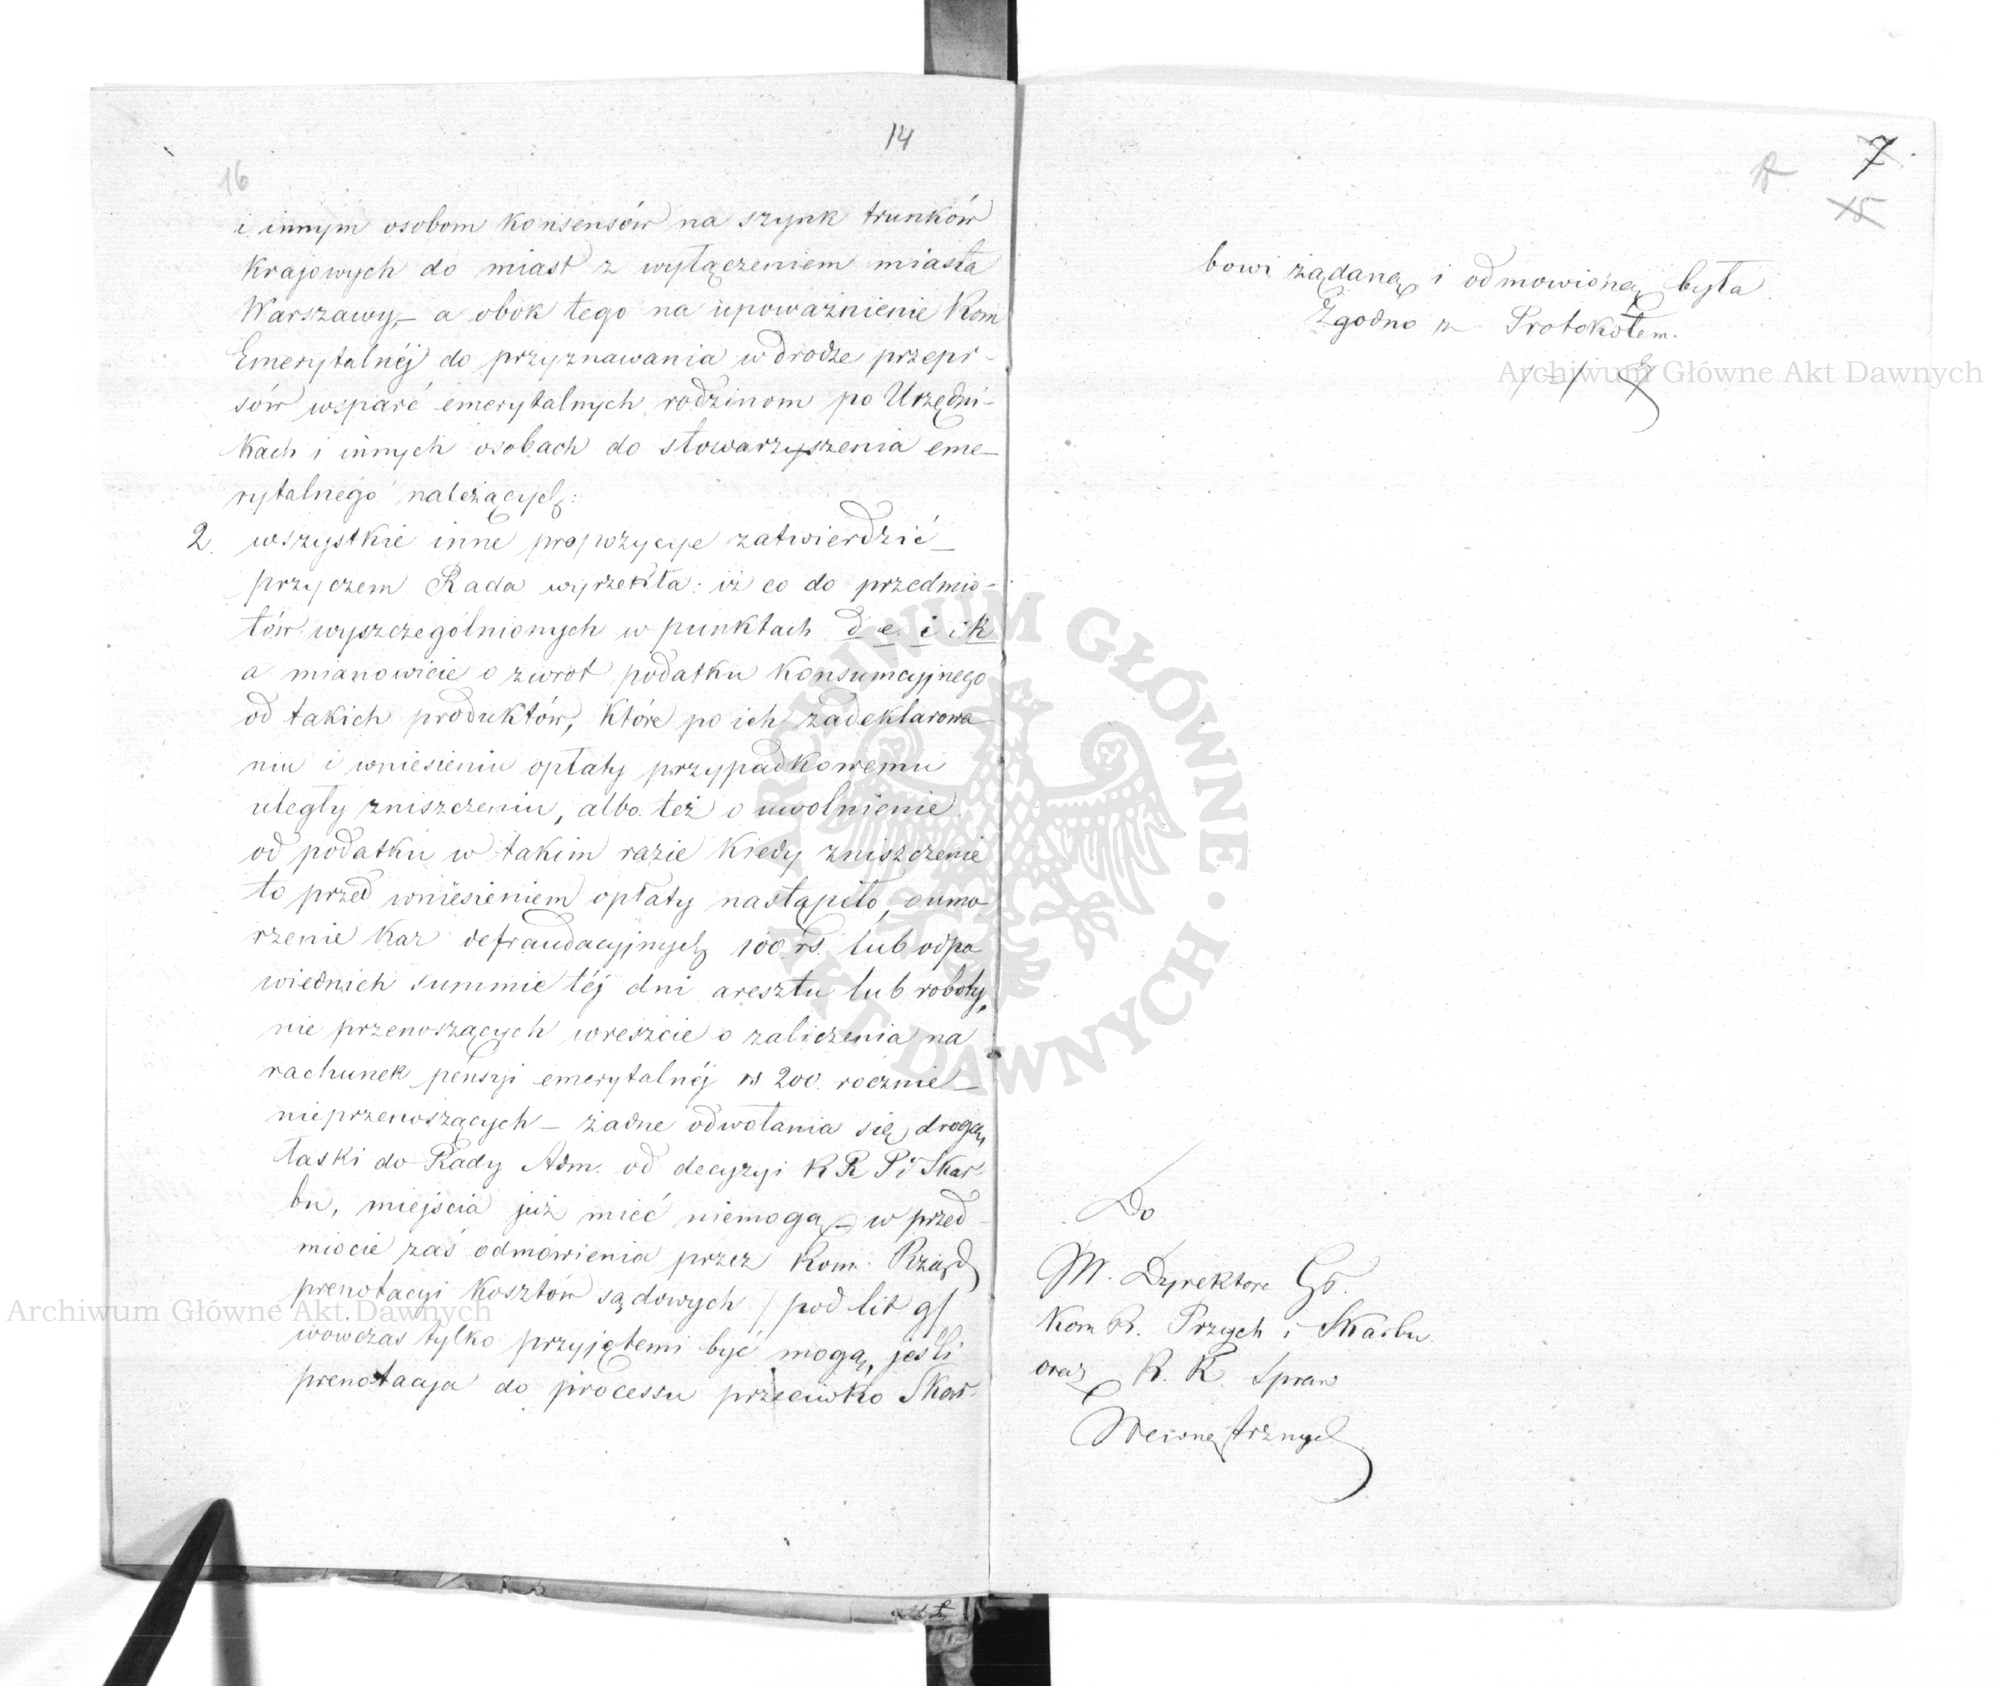 14
16
i innym osobom konsensów na szynk trunków
krajowych do miast z wyłączeniem miasta
Warszawy, – a obok tego na upoważnienie Kom
Emerytalnéj do przyznawania w drodze przepi-
sów wsparć emerytalnych rodzinom po Urzędni-
kach i innych osobach do stowarzyszenia eme-
rytalnego należących:
2. wszystkie inne propozycye zatwierdzić –
przyczem Rada wyrzekła: iż co do przedmio-
tów wyszczególnionych w punktach d e i i k
a mianowicie o zwrot podatku konsumcyjnego
od takich produktów, które po ich zadeklarowa-
niu i wniesieniu opłaty przypadkowemu
uległy zniszczeniu, albo też o uwolnienie
od podatku w takim razie kiedy zniszczenie
to przed wniesieniem opłaty nastąpiło, o umo-
rzenie kar defraudacyjnych 100 rs. lub odpo
wiednich summie téj dni aresztu lub roboty,
nie przenoszących wreszcie o zaliczenia na
rachunek pensyi emerytalnéj rs 200. rocznie –
nieprzenoszących – żadne odwołania się drogą
łaski do Rady Adm. od decyzyi K R P i Skar-
bu, miejsca już mieć niemogą – w przed-
miocie zaś odmówienia przez Kom. Rząd
prenotacyi kosztów sądowych / pod lit g/
wowczas tylko przyjętemi być mogą, jeśli
prenotacya do processu przeciwko Skar-
17
7
15
bowi żądaną i odmowioną była.
Zgodno z Protokołem.
Do
W. Dyrektora Gł.
Kom R. Przych i Skarbu
oraz K. R. Spraw
Wewnętrznych
Archiwum Główne Akt Dawnych
Archiwum Główne Akt Dawnych
ARCHIWUM GŁÓWNE · AKT DAWNYCH ·